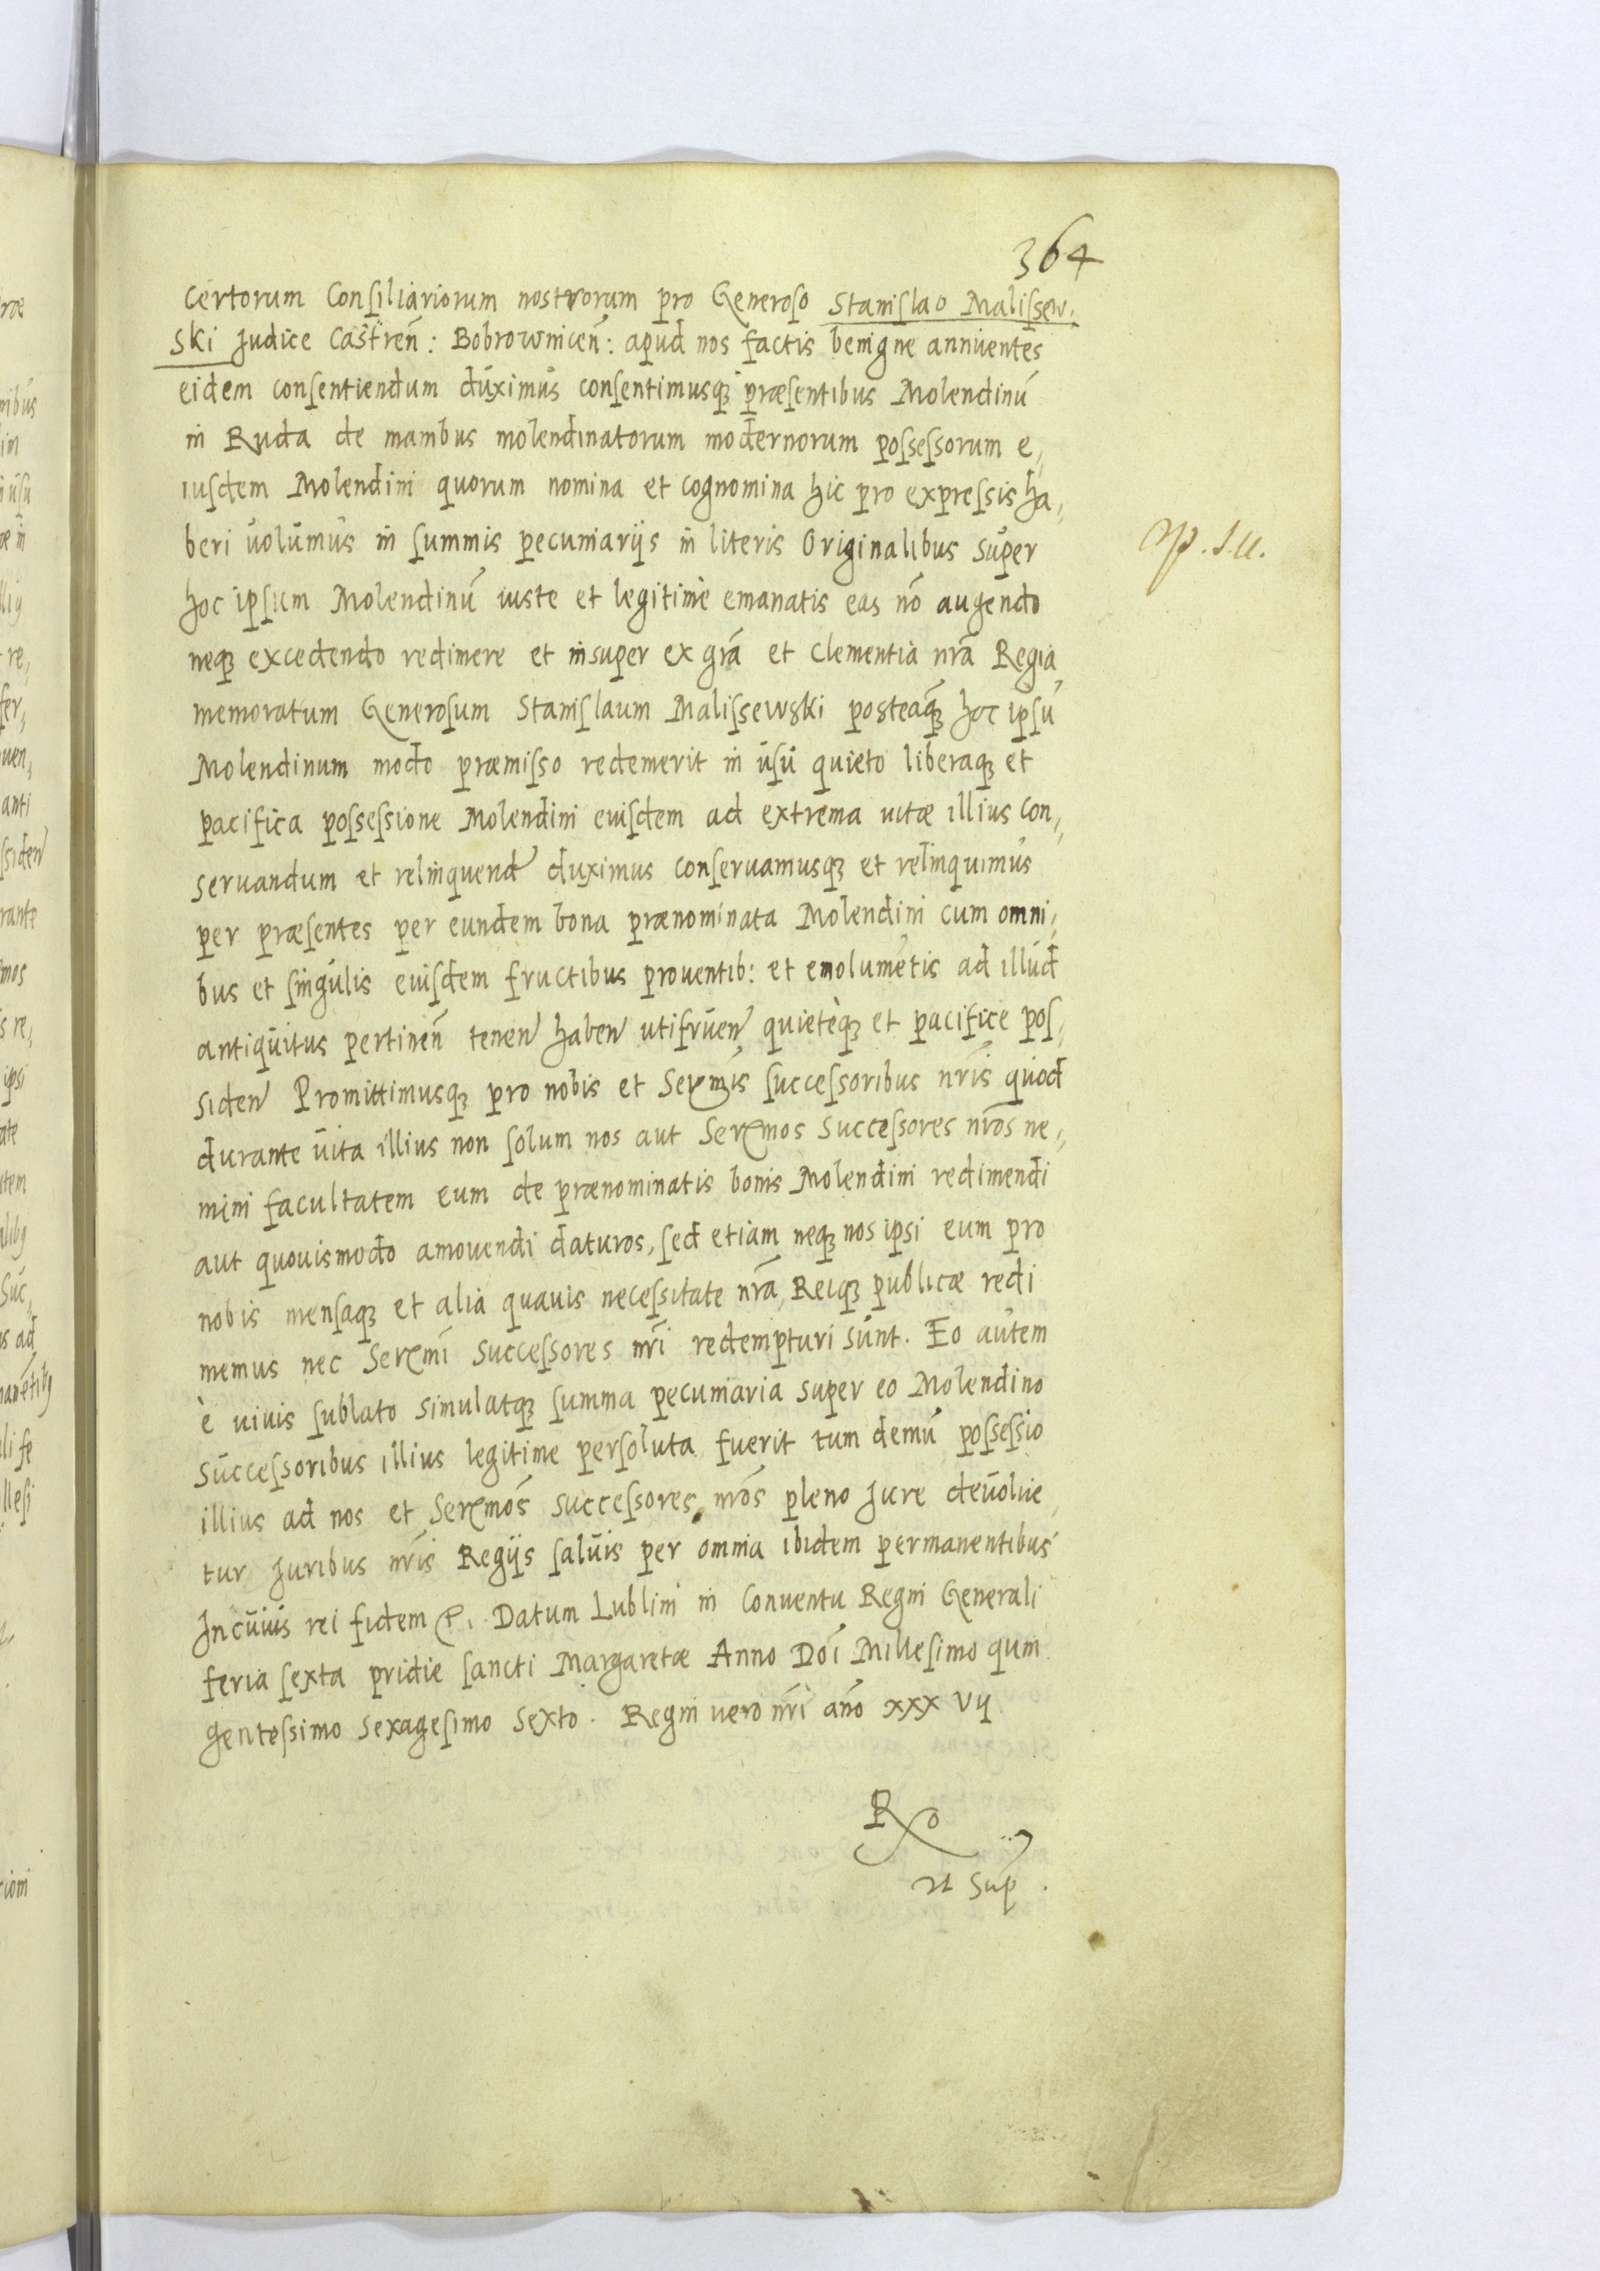 364
certorum Consiliariorum nostrorum pro Generoso Stanislao Malissew,
ski Judice Castreñ: Bobrowniceñ: apud nos factis benigne annuentes
eidem consentiendum duximus consentimusqȝ præsentibus Molendinũ
in Ruda de manibus molendinatorum modernorum possessorum e,
iusdem Molendini quorum nomina et cognomina hic pro expressis ha,
beri volumus in summis pecuniarijs in literis Originalibus super
hoc ipsum Molendinũ iuste et legitimè emanatis eas nõ augendo
neqȝ excedendo redimere et insuper ex grã et clementia nrã Regia,
memoratum Generosum Stanislaum Malissewski posteaq̃ȝ hoc ipsũ
Molendinum modo præmisso redemerit in usu quieto liberaqȝ et
pacifica possessione Molendini eiusdem ad extrema vitæ illius con,
seruandum et relinquend duximus conseruamusqȝ et relinquimus
per præsentes per eundem bona prænominata Molendini cum omni,
bus et singulis eiusdem fructibus prouentib: et emolumẽtis ad illud
antiquitus pertineñ tenen haben utifruen quietèqȝ et pacifice pos,
siden Promittimusqȝ pro nobis et Sermis successoribus nrĩs quod
durante vita illius non solum nos aut Sermos successores nrõs ne,
mini facultatem eum de prænominatis bonis Molendini redimendi
aut quouismodo amouendi daturos, sed etiam neqȝ nos ipsi eum pro
nobis mensaqȝ et alia quauis necessitate nrã, Reiqȝ publicæ redi
memus nec Sermĩ successores nrĩ redempturi sunt. Eo autem
è viuis sublato simulatqȝ summa pecuniaria super eo Molendino
successoribus illius legitime persoluta fuerit tum demũ possessio
illius ad nos et Sermos successores nrõs pleno jure deuolue
tur juribus nrĩs Regijs saluis per omnia ibidem permanentibus
In cuius rei fidem &. Datum Lublini in Conuentu Regni Generali
feria sexta pridie sancti Margaretæ Anno Doĩ Millesimo quin
gentessimo sexagesimo sexto. Regni vero nrĩ año xxxvij
Ro
ut sup.